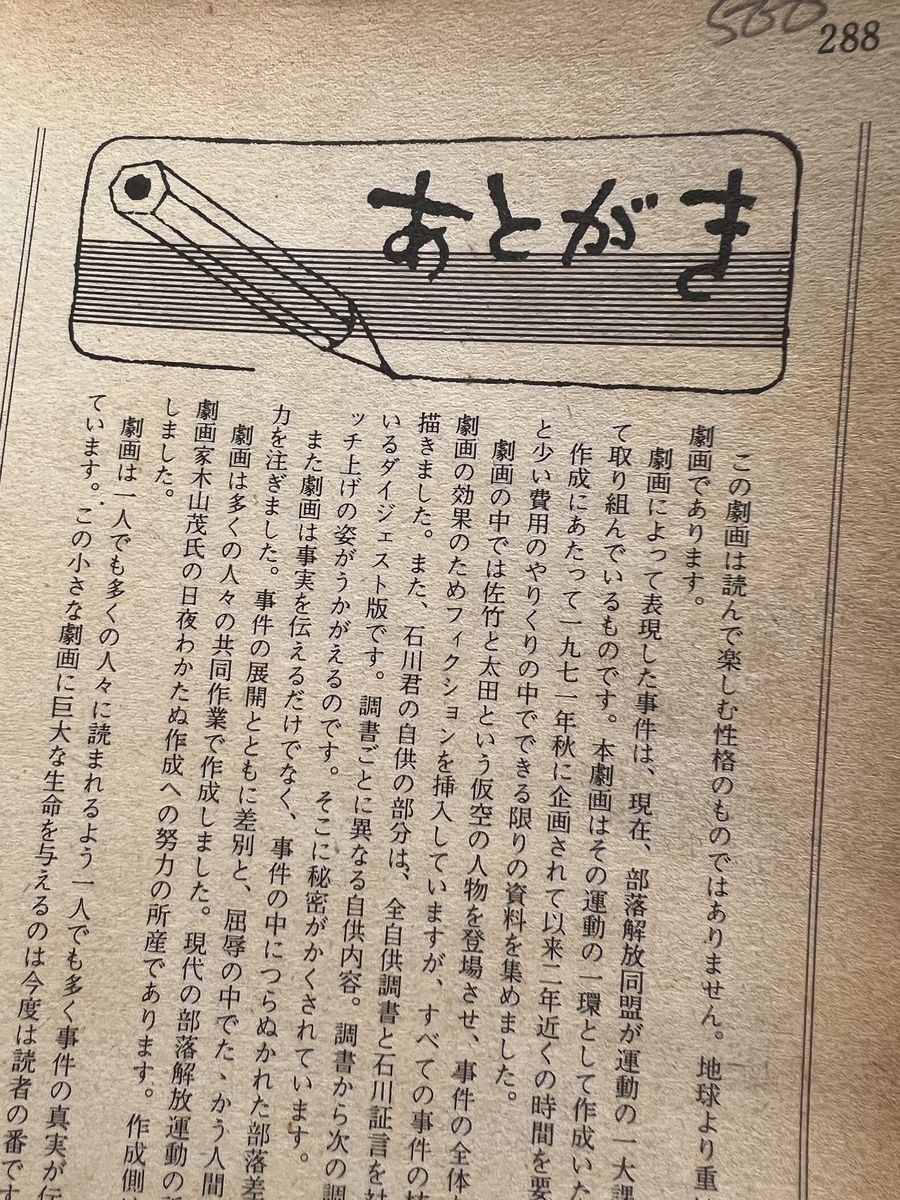 288
あとがき
この劇画は読んで楽しむ性格のものではありません。地球より重
劇画であります。
劇画によって表現した事件は、現在、部落解放同盟が運動の一大課
て取り組んでいるものです。本劇画はその運動の一環として作成いた
作成にあたって一九七一年秋に企画されて以来二年近くの時間を要
と少い費用のやりくりの中でできる限りの資料を集めました。
劇画の中では佐竹と太田という仮空の人物を登場させ、事件の全体
劇画の効果のためフィクションを挿入していますが、すべての事件の
描きました。また、石川君の自供の部分は、全自供調書と石川証言を
いるダイジェスト版です。調書ごとに異なる自供内容。調書から次の調
ッチ上げの姿がうかがえるのです。そこに秘密がかくされています。
また劇画は事実を伝えるだけでなく、事件の中につらぬかれた部落差
力を注ぎました。事件の展開とともに差別と、屈辱の中でたゝかう人間
劇画は多くの人々の共同作業で作成しました。現代の部落解放運動の
劇画家木山茂氏の日夜わかたぬ作成への努力の所産であります。作成側
しました。
劇画は一人でも多くの人々に読まれるよう一人でも多く事件の真実が伝
ています。この小さな劇画に巨大な生命を与えるのは今度は読者の番です